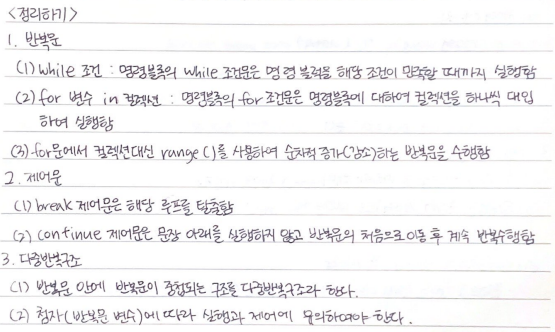 <정리하기>
1. 반복문
(1) while 조건 : 명령블록의 while 조건문은 명령 블럭을 해당 조건이 만족할 때까지 실행함
(2) for 변수 in 컬렉션 : 명령블록의 for 조건문은 명령블록에 대하여 컬렉션을 하나씩 대입
하여 실행함
(3) for문에서 컬렉션대신 range()를 사용하여 순차적 증가(감소)하는 반복문을 수행함
2. 제어문
(1) break 제어문은 해당 루프를 탈출함
(2) continue 제어문은 문장 아래를 실행하지 않고 반복문의 처음으로 이동 후 계속 반복수행함
3. 다중반복구조
(1) 반복문 안에 반복문이 중첩되는 구조를 다중반복구조라 한다.
(2) 첨자(반복문 변수)에 따라 실행과 제어에 유의하여야 한다.